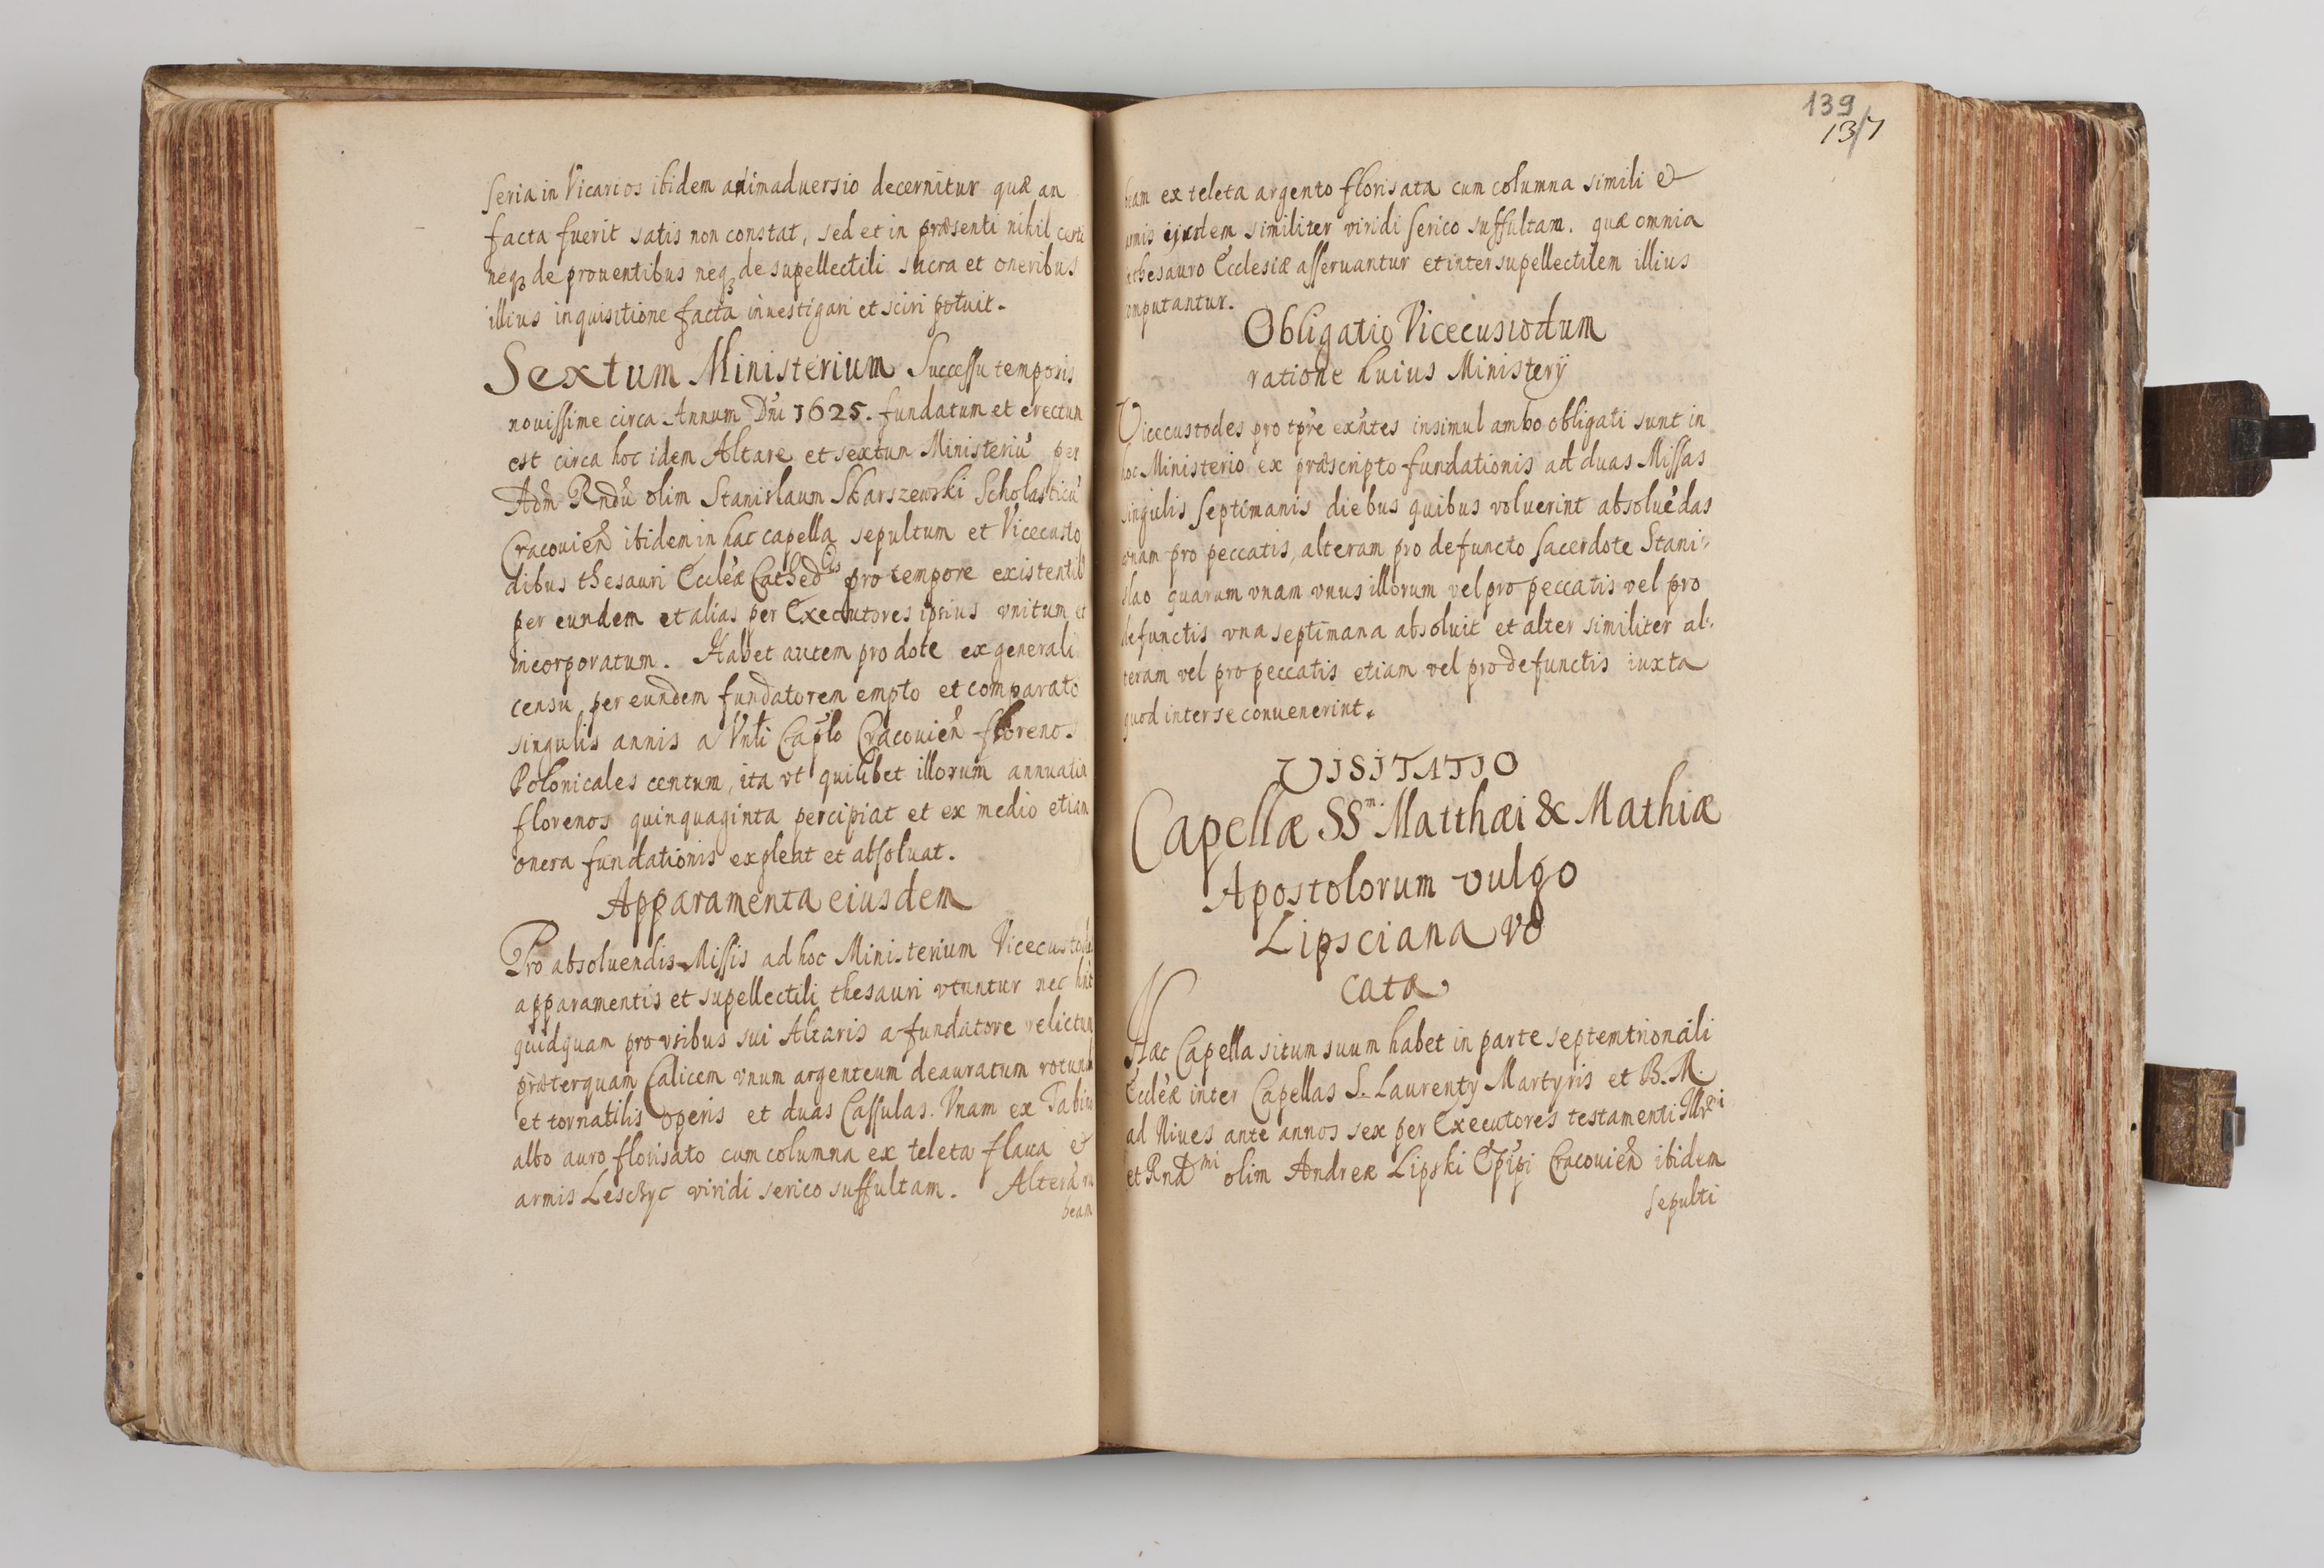 seria in Vicarios ibidem animaduersio decernitur quæ an
facta fuerit satis non constat, sed et in præsenti nihil certi
neq₃ de prouentibus neq₃ de supellectili sacra et oneribus
illius inquisitione facta inuestigari et sciri potuit.
Sextum Ministerium Successu temporis
nouissime circa Annum Dńi 1625. fundatum et erectum
est circa hoc idem Altare et sextum Ministeriū per
Adm Rndū olim Stanislaum Skarszewski Scholasticū
Cracouień ibidem in hac capella sepultum et Vicecusto
dibus thesauri Eccl̃æ Cathed^lis pro tempore existentib
per eundem et alias per Executores ipsius vnitum et
incorporatum. Habet autem pro dote ex generali
censu per eundem fundatorem empto et comparato
singulis annis a Vnli Caplo Cracouień floreno.
Polonicales centum, ita vt quilibet illorum annuatim
florenos quinquaginta percipiat et ex medio etiam
onera fundationis expleat et absoluat.
Apparamenta eiusdem
Pro absoluendis Missis ad hoc Ministerium Vicecustodes
apparamentis et supellectili thesauri vtuntur nec hnt
quidquam pro vsibus sui Altaris a fundatore relictum
præterquam Calicem vnum argenteum deauratum rotund
et tornatilis operis et duas Cassulas. Vnam ex Tabin
albo auro florisato cum columna ex teleta flaua et
armis Leschyc viridi serico suffultam. Alteram ru
beam
139
137
beam ex teleta argento florisata cum columna simili et
armis ijsdem similiter viridi serico suffultam. quæ omnia
in thesauro Ecclesiæ asseruantur et inter supellectilem illius
computantur.
Obligatio Vicecustodum
ratione huius Ministerij
Vicecustodes pro tp̃re exñtes insimul ambo obligati sunt in
hoc Ministerio ex præscripto fundationis ad duas Missas
singulis septimanis diebus quibus voluerint absoluēdas
vnam pro peccatis, alteram pro defuncto sacerdote Stani-
slao quarum vnam vnus illorum vel pro peccatis vel pro
defunctis vna septimana absoluit et alter similiter al-
teram vel pro peccatis etiam vel pro defunctis iuxta
quod inter se conuenerint.
VISITATIO
Capellæ SS^m. Matthæi & Mathiæ
Apostolorum vulgo
Lipsciana vo
cata.
Hæc Capella situm suum habet in parte septemtrionali
Eccl̃æ inter Capellas S. Laurentij Martyris et B. M.
ad Niues ante annos sex per Executores testamenti Illr^mi
et Rnd^mi olim Andreæ Lipski Ep̃pi Cracouień ibidem
sepulti